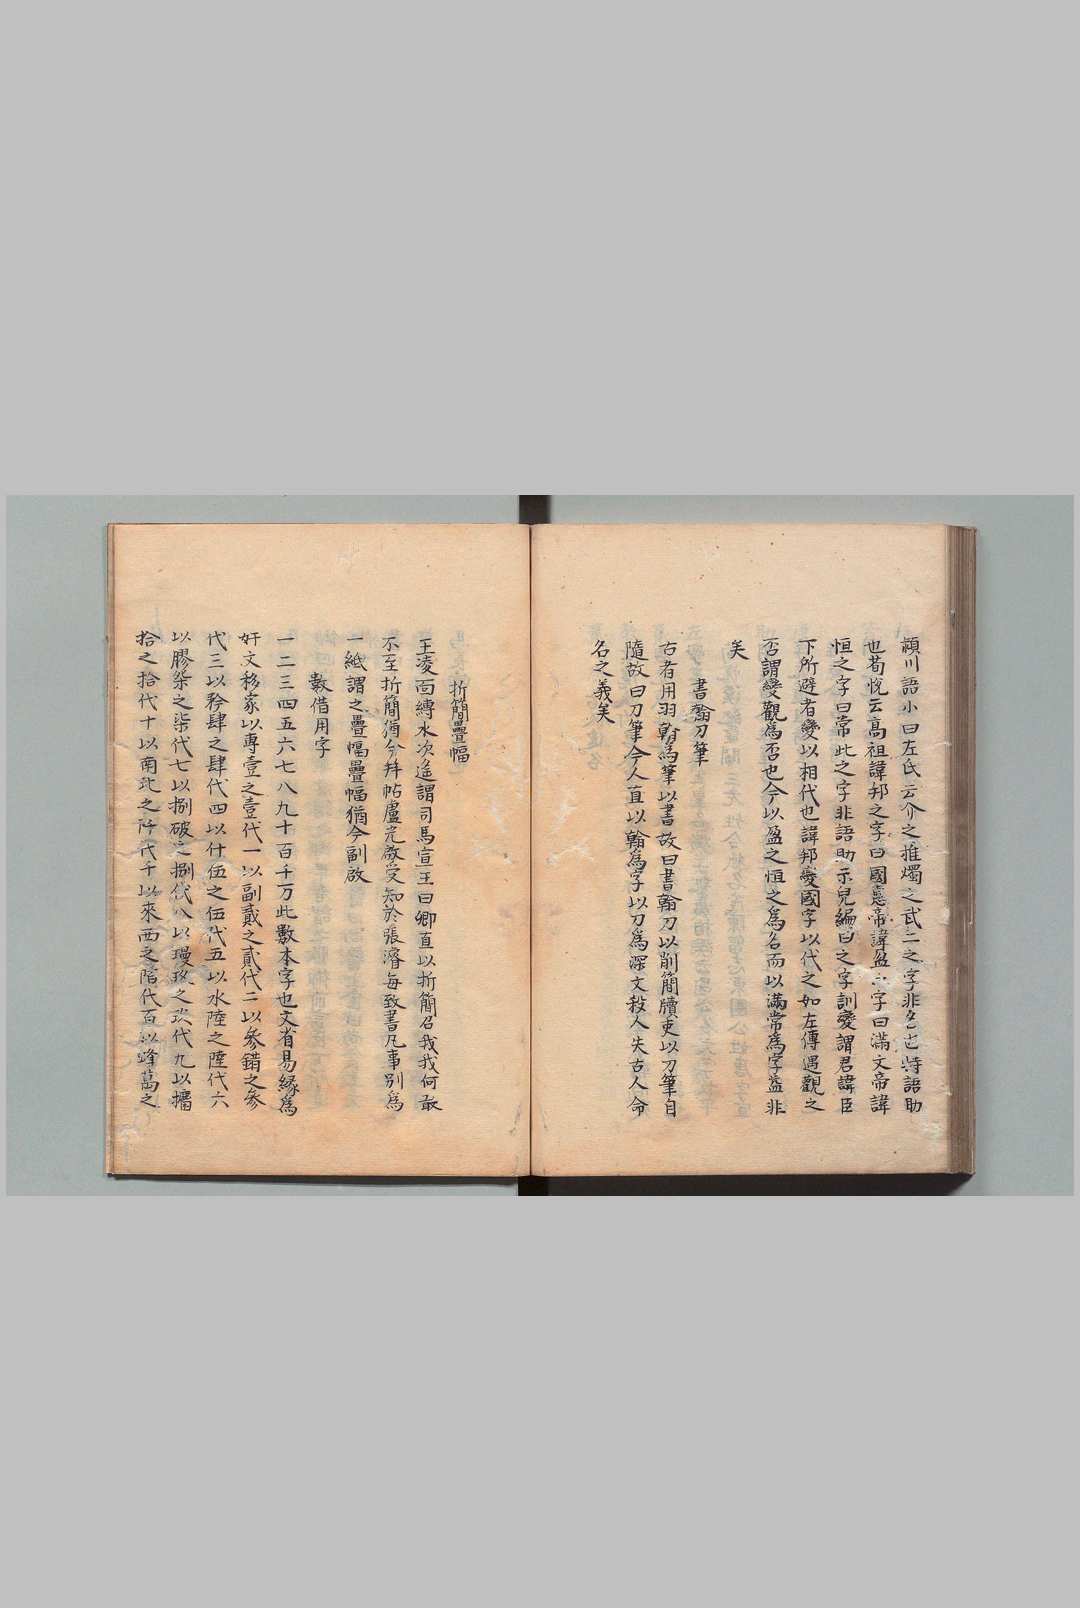 潁川語小曰左氏云介之推燭之武二之字非名也特語助
也荀悅云髙祖諱邦之字曰國惠帝諱盈之字曰滿文帝諱
恒之字曰常此之字非語助示兒編曰之字訓變謂君諱臣
下所避者變以相代也諱邦變國字以代之如左傳遇觀之
否謂變觀為否也今以盈之恒之為名而以滿常為字益非
矣
書翰刀筆
古者用羽翰為筆以書故曰書翰刀以削簡牘吏以刀筆自
隨故曰刀筆今人直以翰為字以刀為深文殺人失古人命
名之義矣
折簡疊幅
王凌面縛水次遙謂司馬宣王曰卿直以折簡召我我何敢
不至折簡猶今幷帖盧光啟受知於張濬每致書凡事別為
一紙謂之疊幅疊幅猶今副啟
數借用字
一二三四五六七八九十百千万此數本字也文省易緣為
奸文移家以專壹之壹代一以副貳之貳代二以參錯之參
代三以矜肆之肆代四以什伍之伍代五以水陸之陸代六
以膠柒之柒代七以捌破之捌代八以瓊玖之玖代九以攟
拾之拾代十以南北之阡代千以來西之陌代百以蜂萬之